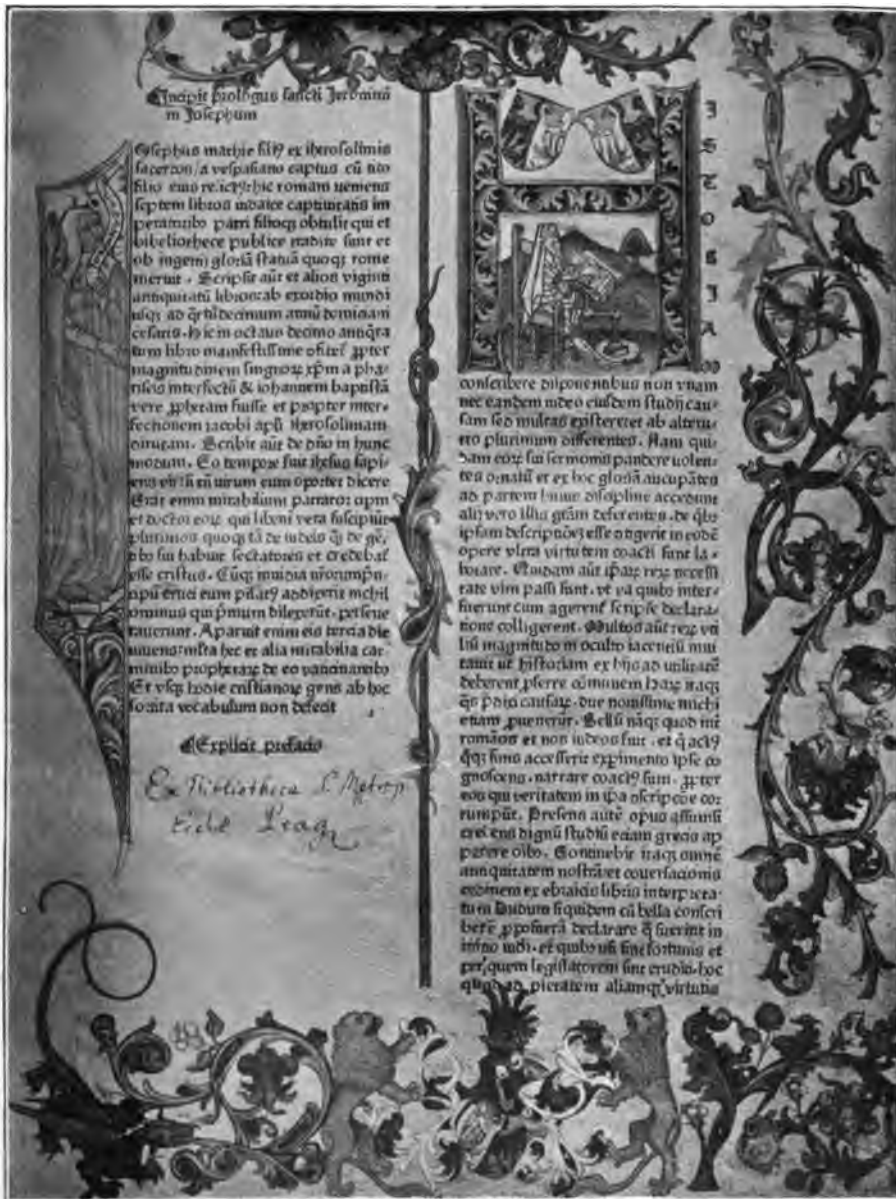 Incipit prologus sancti Jeronimi
in Josephum
Osephus mathie filiꝰ ex iherosolimis
sacerdos / a vespasiano captus cū tito
filio eius relictꝰ: hic romam ueniens
septem libros iudaice captiuitatis im
peratoribꝰ patri filioqꝫ obtulit qui et
bibeliothece publice traditi sunt et
ob ingenij gloriā statuā quoqꝫ rome
meruit . Scripsit aūt et alios viginti
antiquitatū libros: ab exordio mundi
usqꝫ ad decimum annū domiciani
cesaris . hic in octauo decimo antiq̄ta
tum libro manifestissime ꝓpter
magnitudinem singnoꝝ xp̄m a pha
riseis interfectū & iohannem baptistā
vere ꝓphetam fuisse et propter inter-
fectionem iacobi apl̄i iherosolimam
dirutam . Scribit aūt de dn̄o in hunc
modum . Eo tempore fuit ihesus sapi-
ens vir si tn̄ uirum eum oportet dicere
Erat enim mirabilium patrator opm̄
et doctor eoꝝ qui libent̄ vera suscipiūt
plurimos quoqꝫ tā de iudeis q̄ꝫ de gē-
tibꝰ sui habuit sectatores et credebat᷑
esse cristus . Cūqꝫ inuidia nr̄orum pͥn-
cipū cruci eum pilatꝰ addixerit nichil
ominus qui pͥmum dilexerūt . perseue
rauerunt . Aparuit enim eis tercia die
uiuens: multa hec et alia mirabilia car-
minibꝰ prophetaꝝ de eo vaticinantibꝰ
Et vsqꝫ hodie cristianoꝝ gens ab hoc
sortita vocabulum non defecit
Explicit prefacio
Ex Bibliotheca
Eccl. Prag.
H
ISTORIA
conscribere disponentibus non vnam
nec eandem video eiusdem studij cau-
sam sed multas existere: et ab alteru-
tro plurimum differentes . Nam qui-
dam eoꝝ sui sermonis pandere uolen-
tes ornatū et ex hoc gloriā aucupātes
ad partem huius discipline accedunt
alij vero illis gr̄am deferentes . de q̄bꝰ
ipsam descriptōeꝫ esse ɔtigerit in eodē
opere vltra virtutem coacti sunt la-
borare . Quidam aūt ip̄aꝝ reꝝ necessi
tate vim passi sunt . vt ea quibꝰ inter-
fuerunt cum agerent᷑ scripse declara-
tione colligerent . Multos aūt reꝝ vti
liū magnitudo in oculto iacentiū inui
tauit ut historiam ex hijs ad utilitatē
deberent ꝓferre cōmunem haꝝ itaqꝫ
q̄s p̄dixi causaꝝ . due nouissime michi
etiam ꝓuenerūt . Bellū nāqꝫ quod int̄
romāos et nos iudeos fuit . et q̄ actꝰ
finis accesserit exꝑimento ipse co
gnoscens . narrare coactꝰ sum . ꝓpter
eos qui veritatem in ip̄a ɔscripcōe cor
rumpūt . Presens autē opus assumsi
credens dignū studiū eciam grecis ap
parere oībꝰ . Continebit itaqꝫ omnē
antiquitatem nostrā: et conuersacionis
ordinem ex ebraicis libris interpreta-
tum Dudum siquidem cū bella conscri
berē ꝓposuerā declarare q̄ fuerint in
inicio iudi . et quibꝰ usi sint fortunis et
per quem legislatorem sint eruditi . hoc
quod ad pietatem aliamqꝫ virtutis